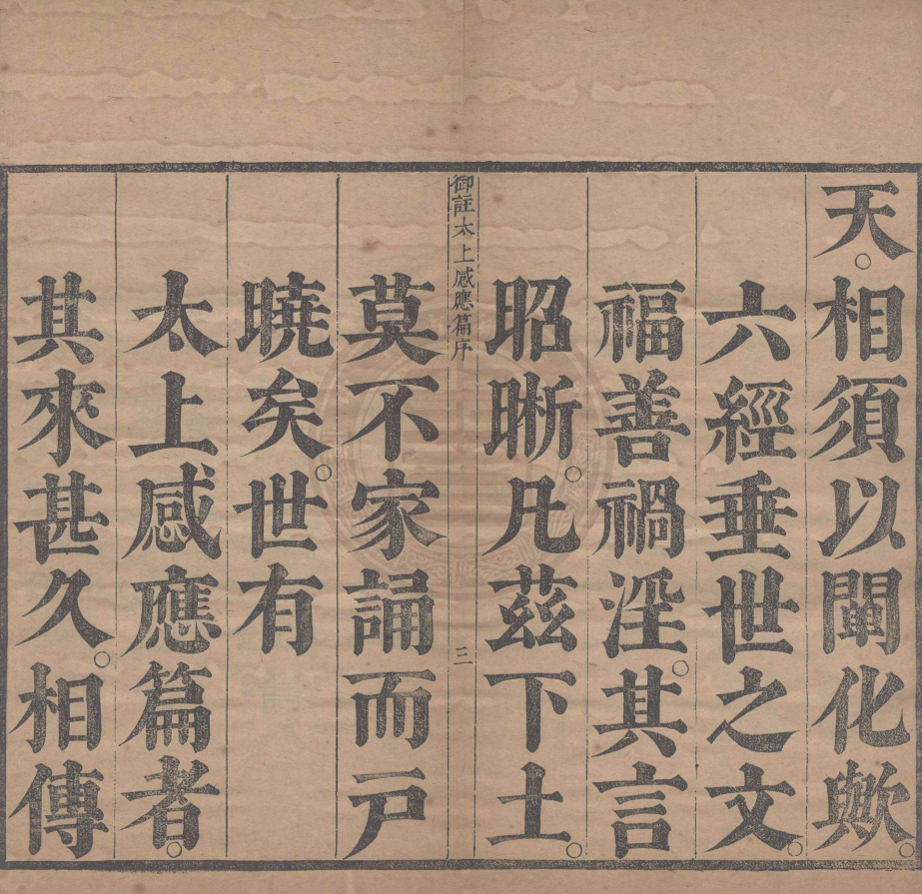 天。相須以闡化歟。
六經垂世之文。
福善禍淫。其言
昭晰。凡茲下土。
御註太上感應篇序
三
莫不家誦而戶
曉矣。世有
太上感應篇者。
其來甚久。相傳